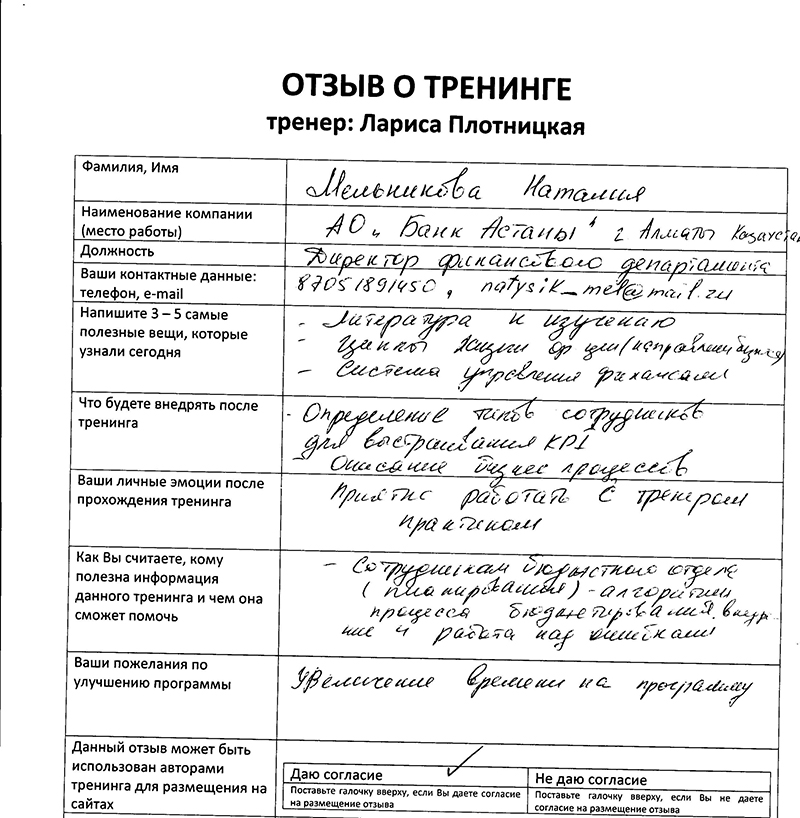 ОТЗЫВ О ТРЕНИНГЕ
тренер: Лариса Плотницкая
Фамилия, Имя
Мельникова Наталия
Наименование компании
(место работы)
АО „Банк Астаны" г Алматы Казахстан
Должность
Директор финансового департамента
Ваши контактные данные:
телефон, e-mail
87051891450, natysik_mel@mail.ru
Напишите 3 – 5 самые
полезные вещи, которые
узнали сегодня
- Литература к изучению
- Циклы жизни
- Система управления финансами
Что будете внедрять после
тренинга
- Определение типов сотрудников
для выстраивания KPI
- Описание бизнес процессов
Ваши личные эмоции после
прохождения тренинга
Приятно работать с тренером
практиком
Как Вы считаете, кому
полезна информация
данного тренинга и чем она
сможет помочь
- Сотрудникам бюджетного отдела
(планирования) - алгоритм
процесса бюджетирования,
и работа над ошибками
Ваши пожелания по
улучшению программы
Увеличение времени на программу
Данный отзыв может быть
использован авторами
тренинга для размещения на
сайтах
Даю согласие
Поставьте галочку вверху, если Вы даете согласие
на размещение отзыва
Не даю согласие
Поставьте галочку вверху, если Вы не даете
согласие на размещение отзыва